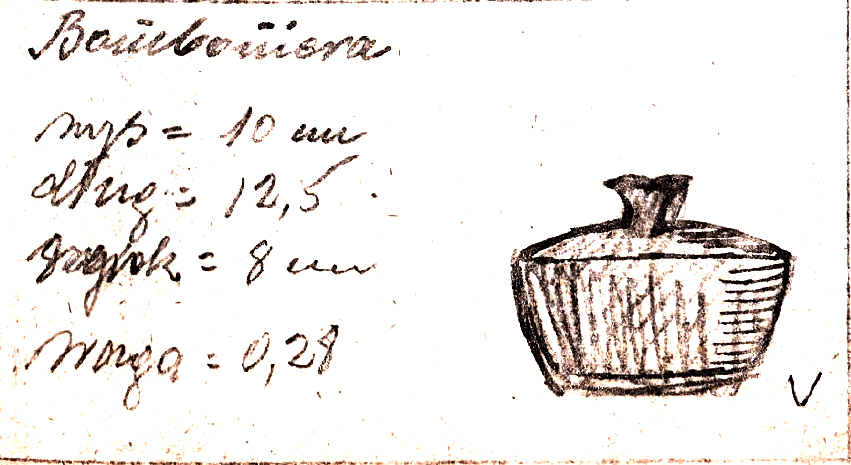 Bomboniera
wys = 10 cm
dług = 12,5
szerok = 8 cm
Waga = 0,28
V